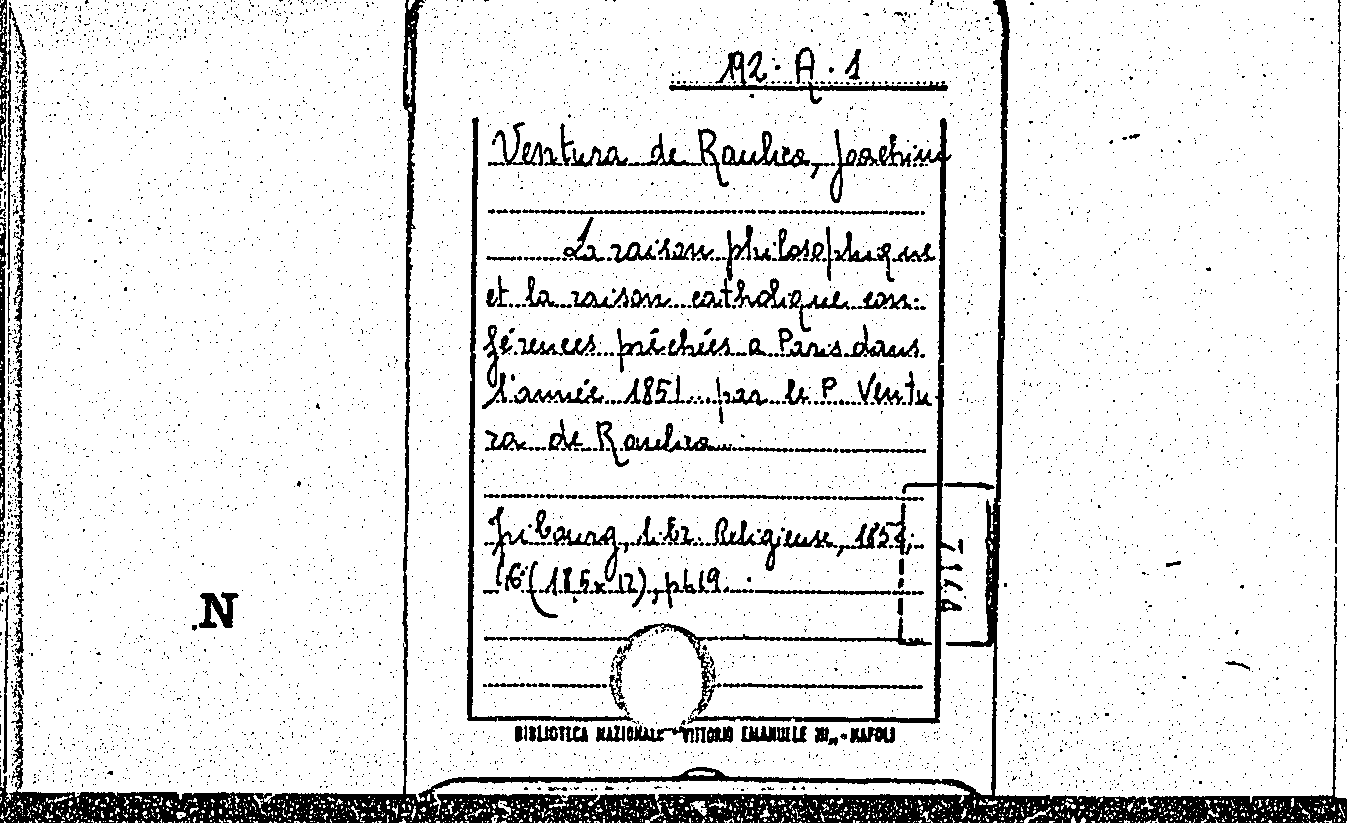 192. A. 1
Ventura de Raulica, Joachim
La raison philosophique
et la raison catholique con-
férences préchées a Paris dans
l'année 1851 par le P Ventu
ra de Raulica.
Fribourg, libr. Religieuse, 1852,
16 (18,5 x 12), p. 419.
N
BIBLIOTECA NAZIONALE "VITTORIO EMANUELE III" - NAPOLI